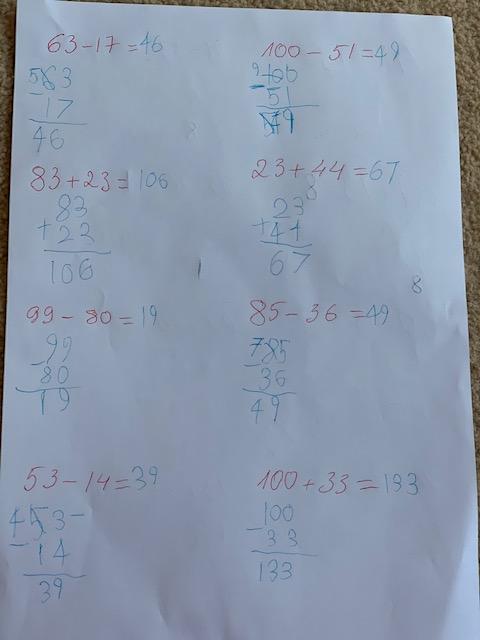 63-17=46
563
-17
46
100-51=49
9100
-51
49
83+23=106
83
+23
106
23+44=67
8
23
+44
67
99-80=19
99
-80
19
8
85-36=49
785
-36
49
53-14=39
453-
-14
39
100+33=133
100
-33
133